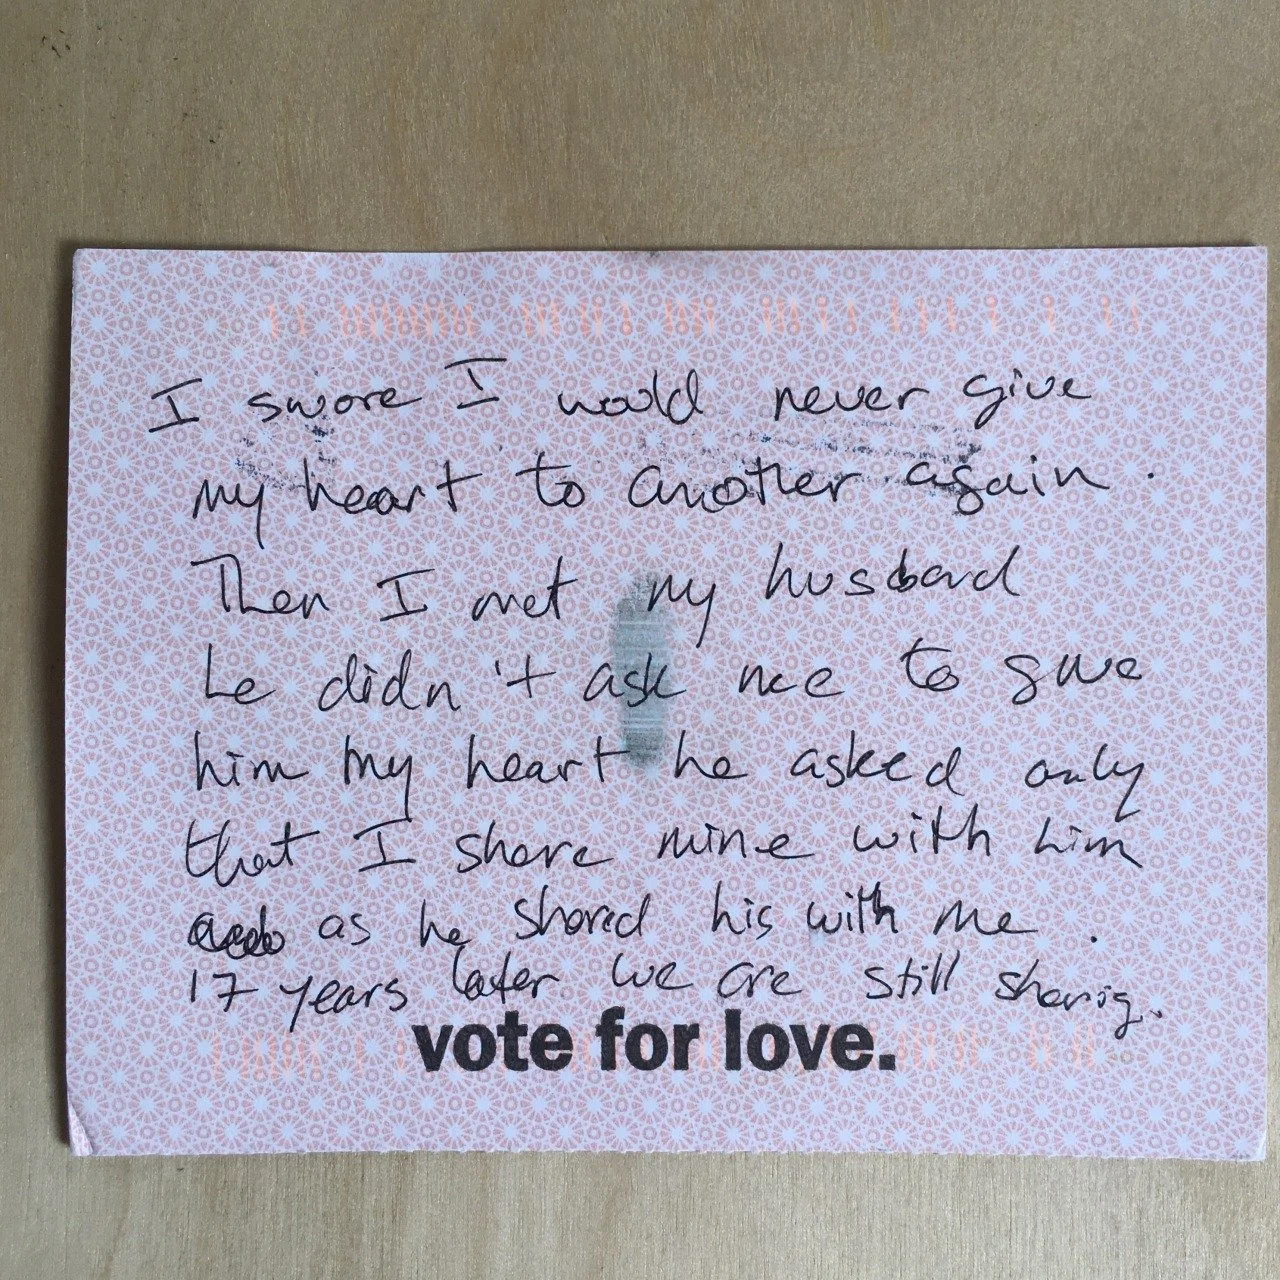 I swore I would never give
my heart to another again.
Then I met my husband
he didn't ask me to give
him my heart he asked only
that I share mine with him
as he shared his with me.
17 years later we are still sharing.
vote for love.